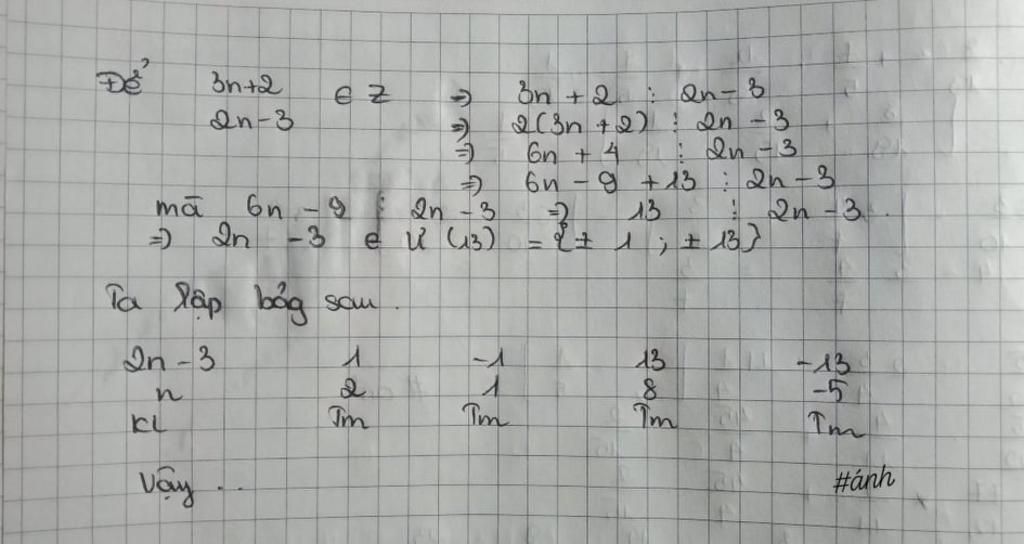 Để 3n+2 ∈ Z => 3n + 2 ⋮ 2n - 3
2n-3 => 2(3n + 2) ⋮ 2n - 3
=> 6n + 4 ⋮ 2n - 3
=> 6n - 9 + 13 ⋮ 2n - 3
mà 6n - 9 ⋮ 2n - 3 => 13 ⋮ 2n - 3.
=> 2n - 3 ∈ Ư (13) = {± 1 ; ± 13}
Ta lập bảg sau.
2n - 3 1 -1 13 -13
n 2 1 8 -5
KL Tm Tm Tm Tm
Vậy ...
#ánh